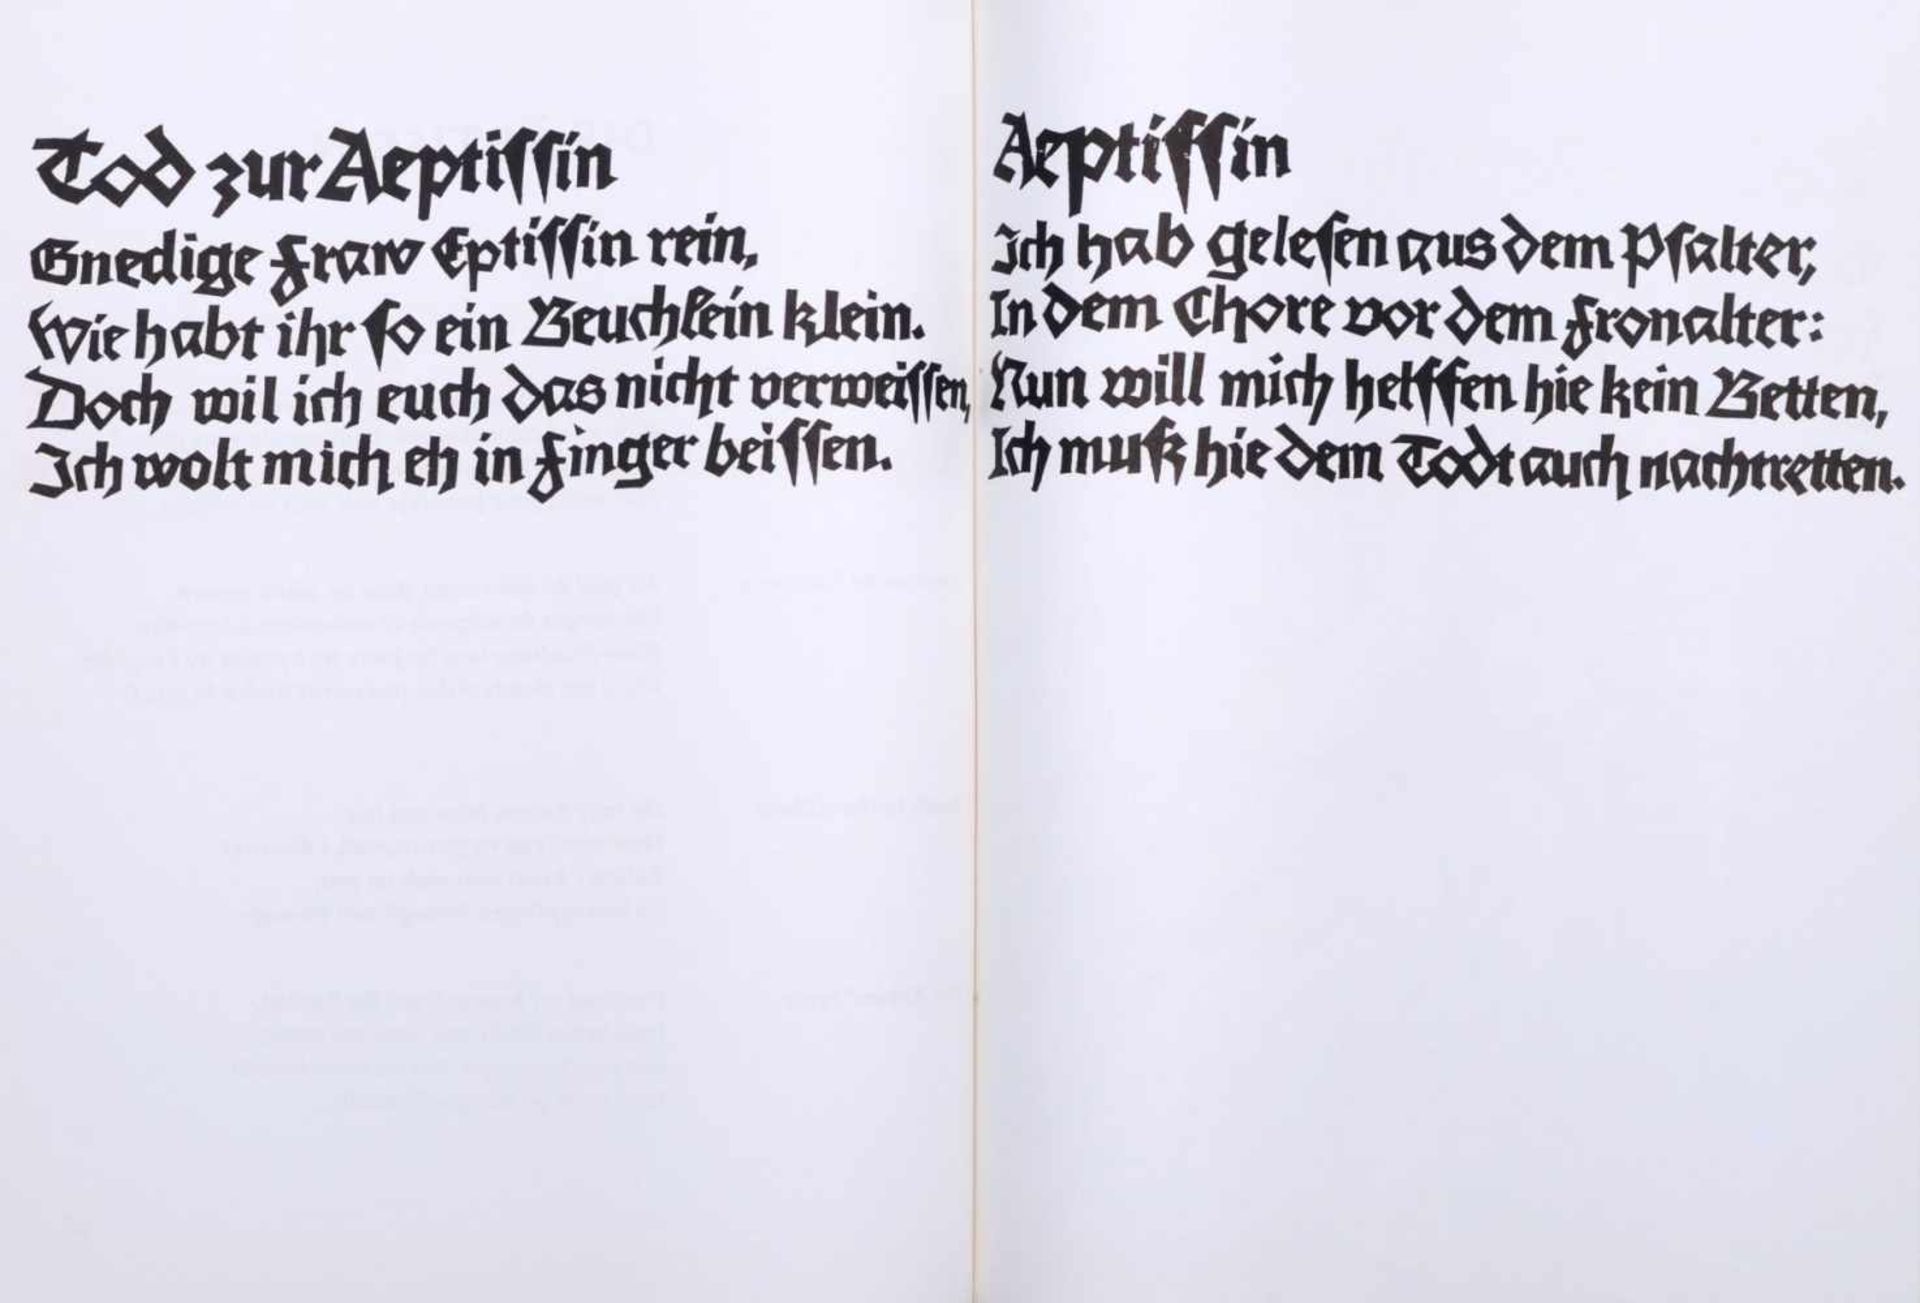 Tod zur Aeptissin
Gnedige Fraw Eptissin rein,
Wie habt ihr so ein Beuchlein klein.
Doch wil ich euch das nicht verweissen,
Ich wolt mich eh in Finger beissen.
Aeptissin
Ich hab gelesen aus dem Psalter,
In dem Chore vor dem Fronalter:
Nun will mich helffen hie kein Betten,
Ich muß hie dem Todt auch nachtretten.